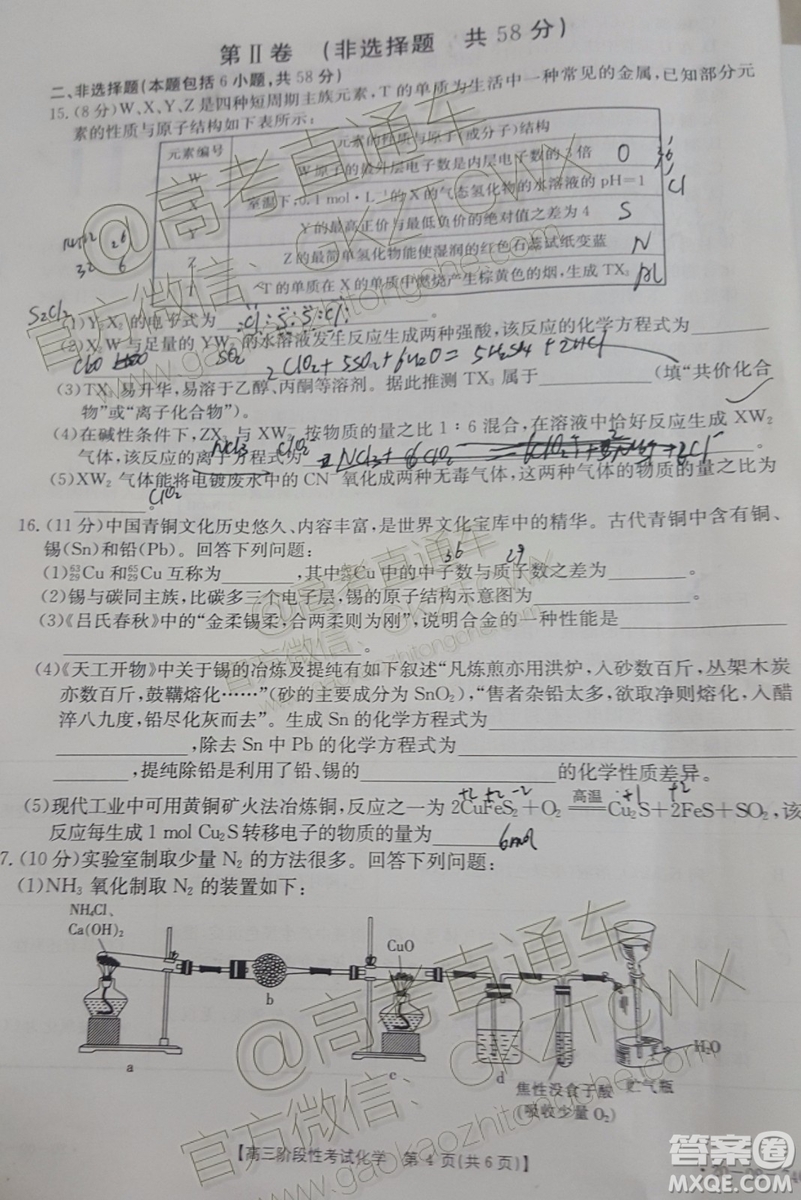 第Ⅱ卷 (非选择题 共58分)
二、非选择题(本题包括6小题,共58分)
15.(8分)W、X、Y、Z是四种短周期主族元素,T的单质为生活中一种常见的金属,已知部分元
素的性质与原子结构如下表所示:
元素编号 元素的性质与原子(或分子)结构
W W原子的最外层电子数是内层电子数的3倍 O
X 室温下,0.1 mol·L⁻¹的X的气态氢化物的水溶液的pH=1 Cl
Y Y的最高正价与最低负价的绝对值之差为4 S
Z Z的最简单氢化物能使湿润的红色石蕊试纸变蓝 N
T T的单质在X的单质中燃烧产生棕黄色的烟,生成TX₃
S₂Cl₂
(1)Y₂X₂的电子式为 :Cl:S:S:Cl: 。
(2)XW₂与足量的YW₂的水溶液发生反应生成两种强酸,该反应的化学方程式为
SO₂ 2ClO₂+5SO₂+6H₂O=5H₂SO₄+2HCl 。
(3)TX₃易升华,易溶于乙醇、丙酮等溶剂。据此推测TX₃属于 (填“共价化合
物”或“离子化合物”)。
(4)在碱性条件下,ZX₃与XW₂⁻按物质的量之比1∶6混合,在溶液中恰好反应生成XW₂
NCl₃ ClO₂⁻
气体,该反应的离子方程式为 。
(5)XW₂气体能将电镀废水中的CN⁻氧化成两种无毒气体,这两种气体的物质的量之比为
ClO₂
。
16.(11分)中国青铜文化历史悠久、内容丰富,是世界文化宝库中的精华。古代青铜中含有铜、
锡(Sn)和铅(Pb)。回答下列问题:
36 29
(1)⁶³₂₉Cu和⁶⁵₂₉Cu互称为 ,其中⁶⁵₂₉Cu中的中子数与质子数之差为 。
(2)锡与碳同主族,比碳多三个电子层,锡的原子结构示意图为 。
(3)《吕氏春秋》中的“金柔锡柔,合两柔则为刚”,说明合金的一种性能是
。
(4)《天工开物》中关于锡的冶炼及提纯有如下叙述“凡炼煎亦用洪炉,入砂数百斤,丛架木炭
亦数百斤,鼓鞲熔化……”(砂的主要成分为SnO₂),“售者杂铅太多,欲取净则熔化,入醋
淬八九度,铅尽化灰而去”。生成Sn的化学方程式为
,除去Sn中Pb的化学方程式为
,提纯除铅是利用了铅、锡的 的化学性质差异。
(5)现代工业中可用黄铜矿火法冶炼铜,反应之一为2CuFeS₂+O₂ 高温 Cu₂S+2FeS+SO₂,该
反应每生成1 mol Cu₂S转移电子的物质的量为 6mol 。
7.(10分)实验室制取少量N₂的方法很多。回答下列问题:
(1)NH₃氧化制取N₂的装置如下:
NH₄Cl、
Ca(OH)₂
CuO
b
H₂O
a
c
d
焦性没食子酸
(吸收少量O₂)
贮气瓶
【高三阶段性考试化学 第4页(共6页)】
@高考直通车
官方微信:GKZTCWX
www.gaokaozhitongche.com
答案圈
MXQE.COM